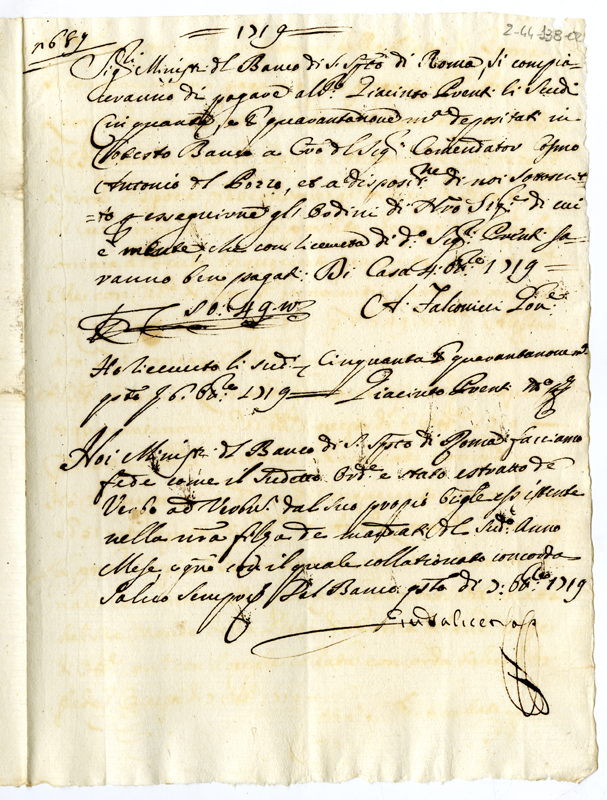 2-44
n 687
1719
Sig.ri Ministri del Banco di S. Spto di Roma, si compia=
ceranno di pagare al Sig.r Giacinto Eventi li Scudi
Cinquanta, e quarantanove m.ta depositati in
Codesto Banco a Cr.o del Sig.r Comendator Cosmo
Antonio del Pozzo, et a disposit.ne di noi sottoscrit=
=to eseguirne gli Ordini di Nro Sig.re di cui
è mente, che con licenza di d.o Sig.r Eventi sa=
ranno ben pagati. Di Casa 4. 8bre 1719 =
50. 49 m.ta A. Falconieri Gov.re
Ho ricevuto li sud.i Cinquanta quarantanove m.ta
qsto di 6. 8bre 1719 Giacinto Eventi
Noi Ministri del Banco di S. Spto di Roma facciamo
fede come il Sudetto Ord.e è stato estratto de
Verbo ad Verbum dal suo proprio esistente
nella nra filza de mandati del Sud.o Anno
Mese e giorno con il quale collationato concorda
Salvo Sempre Dal Banco qsto di 7. 8bre 1719